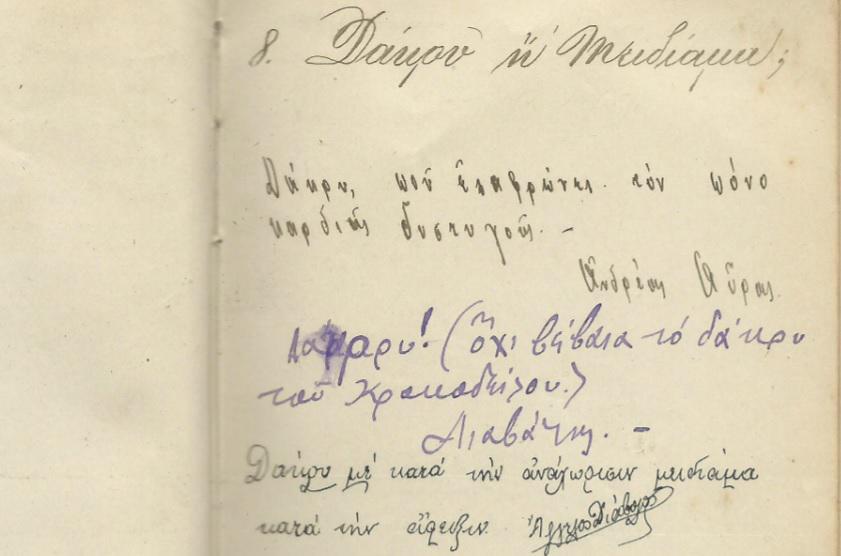 8. Δάκρυ ἢ Μειδίαμα;
Δάκρυ, ποῦ ἐλαφρώνει τὸν πόνο
καρδιᾶς δυστυχοῦς. -
Ἀνδρέας Αὔρας
Δάκρυ! (ὄχι βέβαια τό δάκρυ
τοῦ Κροκοδείλου.)
Διαβάτης. -
Δάκρυ μὲ κατά τὴν ἀναχώρισιν μειδίαμα
κατά τὴν ἄφιξιν. Ἄγγελος Διάβολος